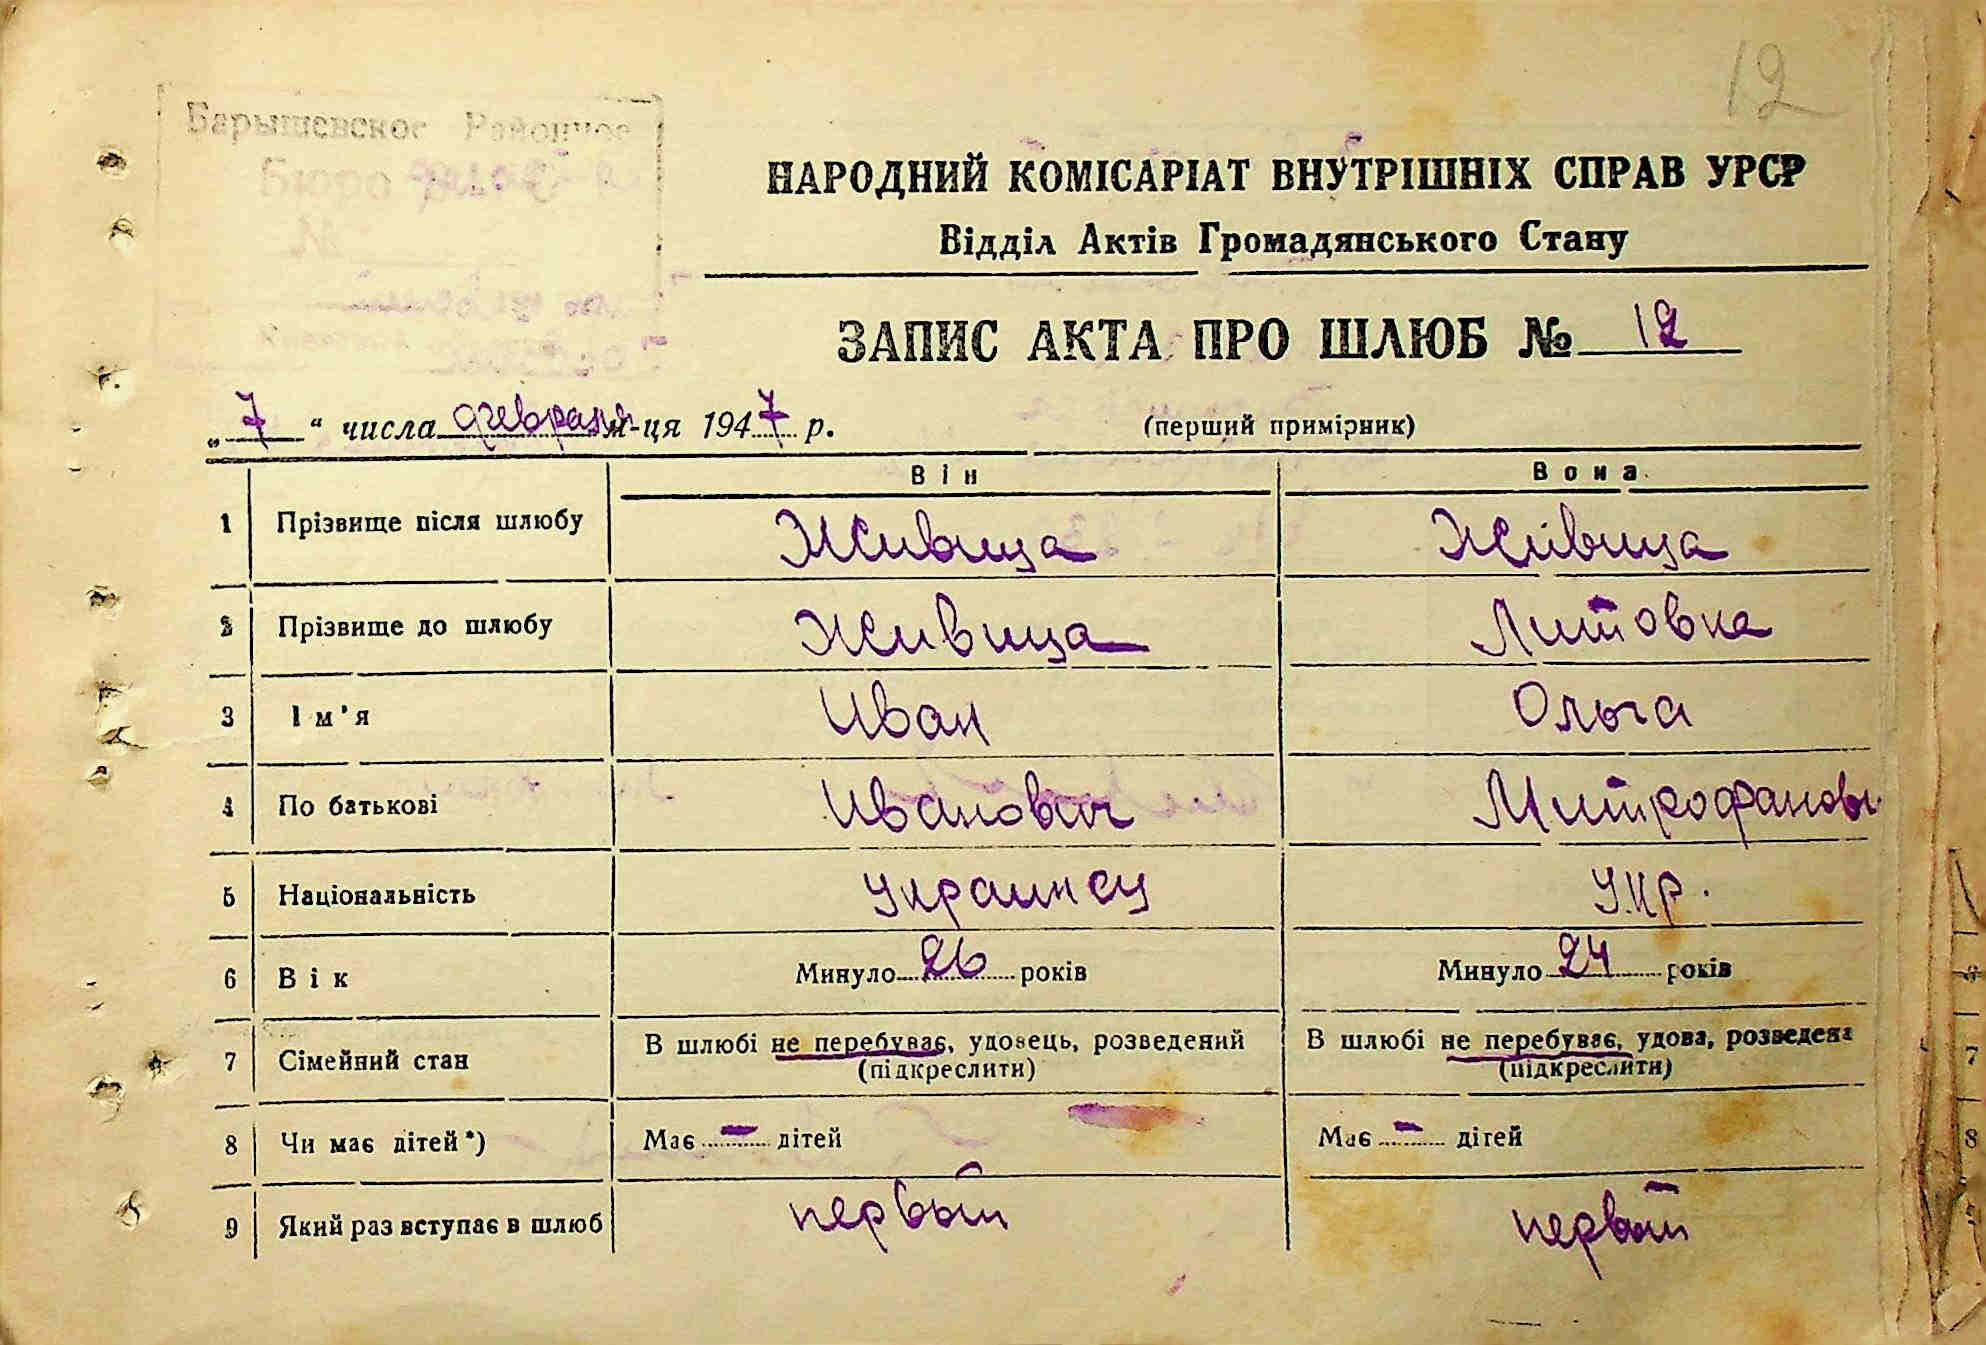 12
Барышевское Районное
Бюро
№
НАРОДНИЙ КОМІСАРІАТ ВНУТРІШНІХ СПРАВ УРСР
Відділ Актів Громадянського Стану
ЗАПИС АКТА ПРО ШЛЮБ № 12
„ 7 “ числа февраля м-ця 1947 р. (перший примірник)
Він Вона
1 Прізвище після шлюбу Живица Живица
2 Прізвище до шлюбу Живица Литовка
3 Ім'я Иван Ольга
4 По батькові Иванович Митрофановн
5 Національність Украинец Укр.
6 Вік Минуло 26 років Минуло 24 років
7 Сімейний стан В шлюбі не перебуває, удовець, розведений В шлюбі не перебуває, удова, розведена
(підкреслити) (підкреслити)
8 Чи має дітей*) Має - дітей Має - дітей
9 Який раз вступає в шлюб первый первый
7
8